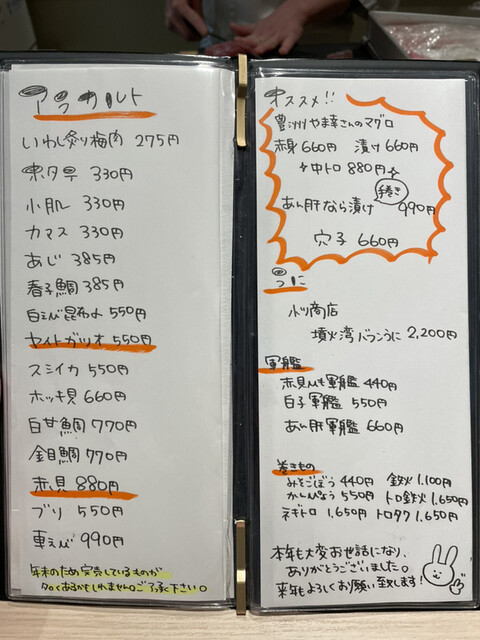 アラカルト
いわし炙り梅肉 275円
小肌 330円
カマス 330円
あじ 385円
春子鯛 385円
白えび昆布〆 550円
ヤイトガツオ 550円
スミイカ 550円
ホッキ貝 660円
白甘鯛 770円
金目鯛 770円
赤貝 880円
ブリ 550円
車えび 990円
年末のため完売しているものが
多くあるかもしれません。ご了承下さい。
オススメ!!
豊洲やま幸さんのマグロ
赤身 660円 漬け 660円
中トロ 880円
巻き
あん肝なら漬け 990円
穴子 660円
うに
小川商店
噴火湾バフンうに 2,200円
軍艦
赤貝ひも軍艦 440円
白子軍艦 550円
あん肝軍艦 660円
巻きもの
みそごぼう 440円 鉄火 1,100円
かんぴょう 550円 トロ鉄火 1,650円
ネギトロ 1,650円 トロタク 1,650円
本年も大変お世話になり、
ありがとうございました。
来年もよろしくお願い致します!